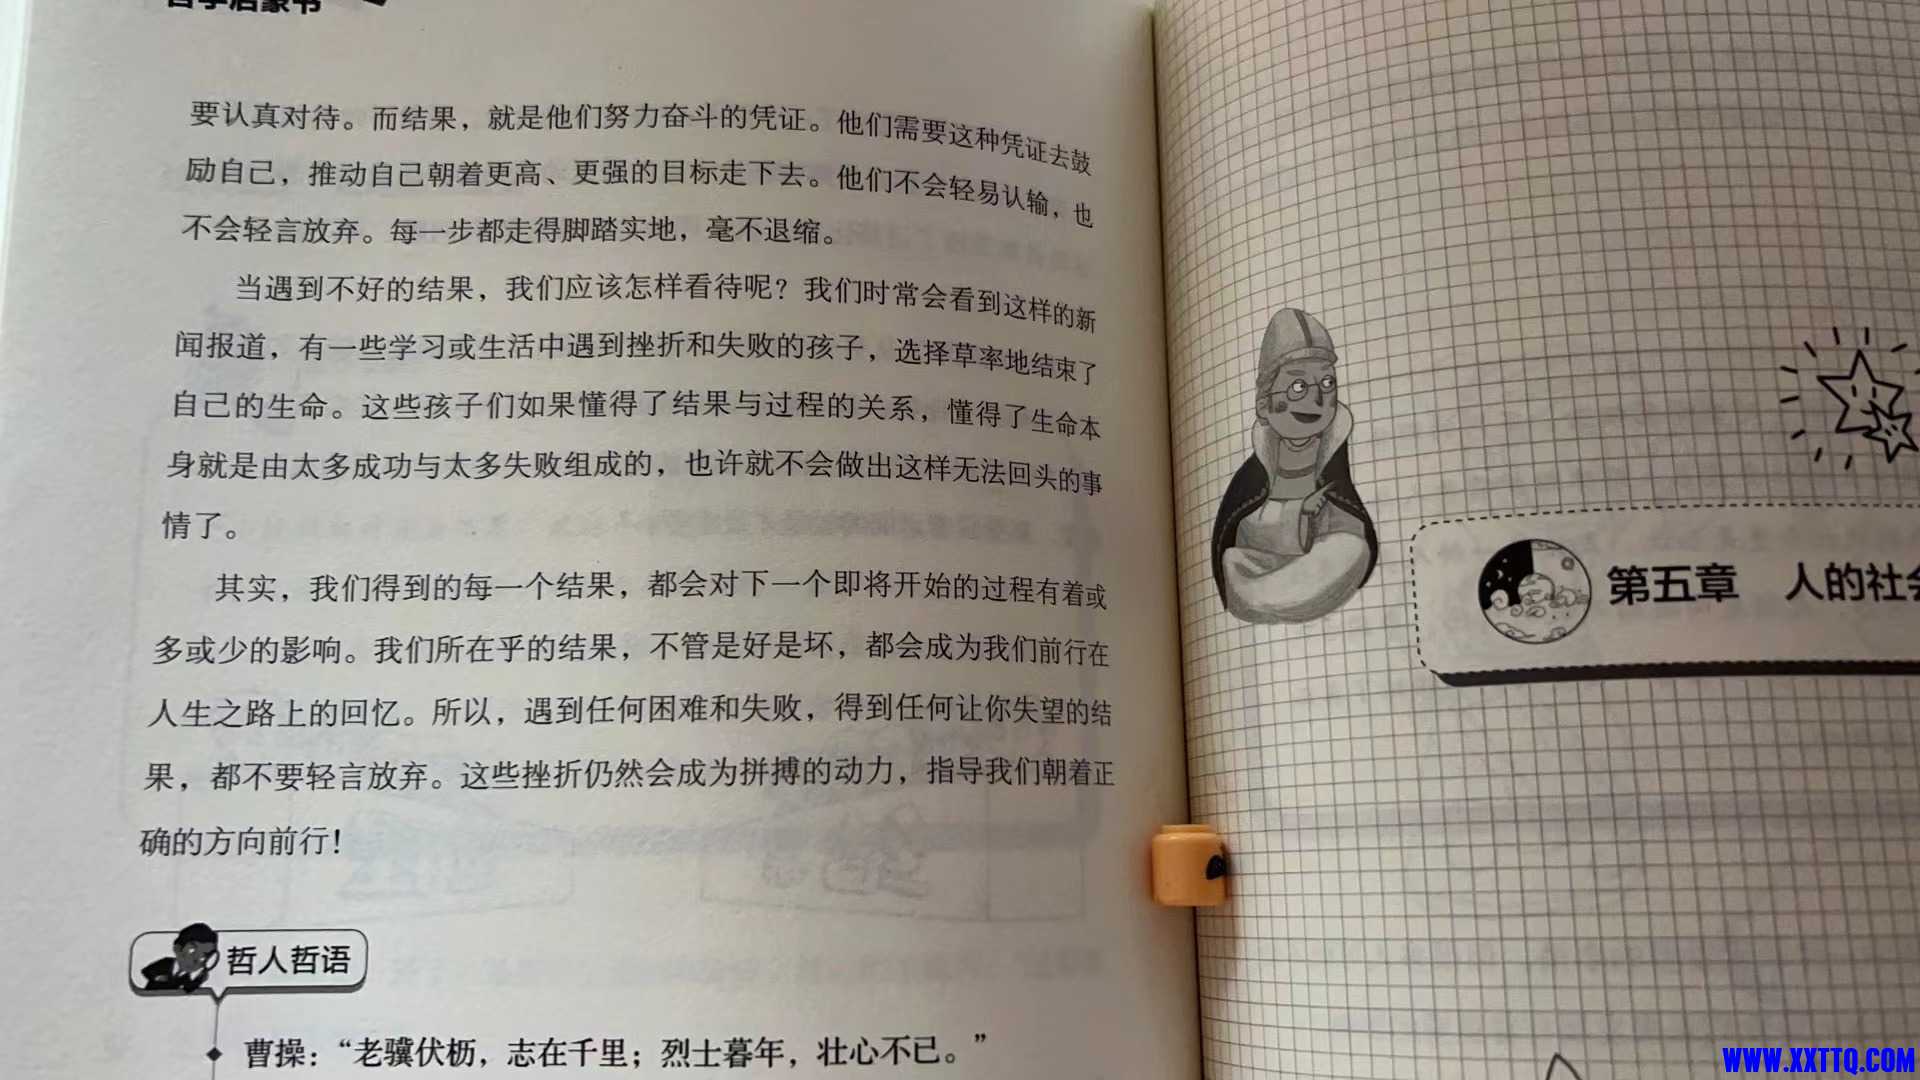 哲学启蒙书
要认真对待。而结果，就是他们努力奋斗的凭证。他们需要这种凭证去鼓
励自己，推动自己朝着更高、更强的目标走下去。他们不会轻易认输，也
不会轻言放弃。每一步都走得脚踏实地，毫不退缩。
当遇到不好的结果，我们应该怎样看待呢？我们时常会看到这样的新
闻报道，有一些学习或生活中遇到挫折和失败的孩子，选择草率地结束了
自己的生命。这些孩子们如果懂得了结果与过程的关系，懂得了生命本
身就是由太多成功与太多失败组成的，也许就不会做出这样无法回头的事
情了。
其实，我们得到的每一个结果，都会对下一个即将开始的过程有着或
多或少的影响。我们所在乎的结果，不管是好是坏，都会成为我们前行在
人生之路上的回忆。所以，遇到任何困难和失败，得到任何让你失望的结
果，都不要轻言放弃。这些挫折仍然会成为拼搏的动力，指导我们朝着正
确的方向前行！
哲人哲语
曹操：“老骥伏枥，志在千里；烈士暮年，壮心不已。”
第五章 人的社会
WWW.XXTTQ.COM